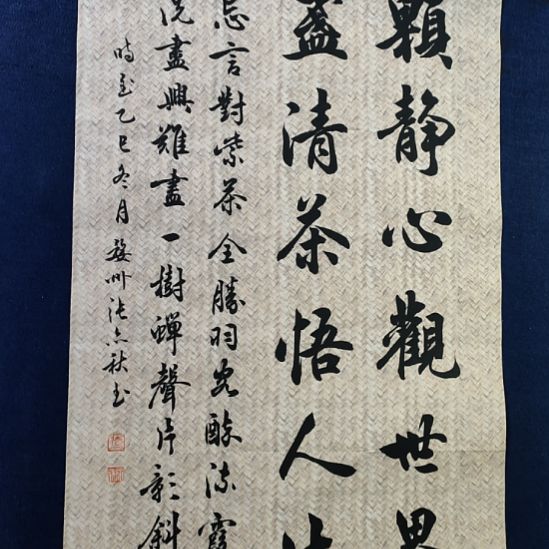 顆静心觀世界
盞清茶悟人生
忘言對紫茶全勝羽客醉流霞
洗盡興難盡一樹蟬聲片影斜
時至乙巳冬月婺州張亦秋書